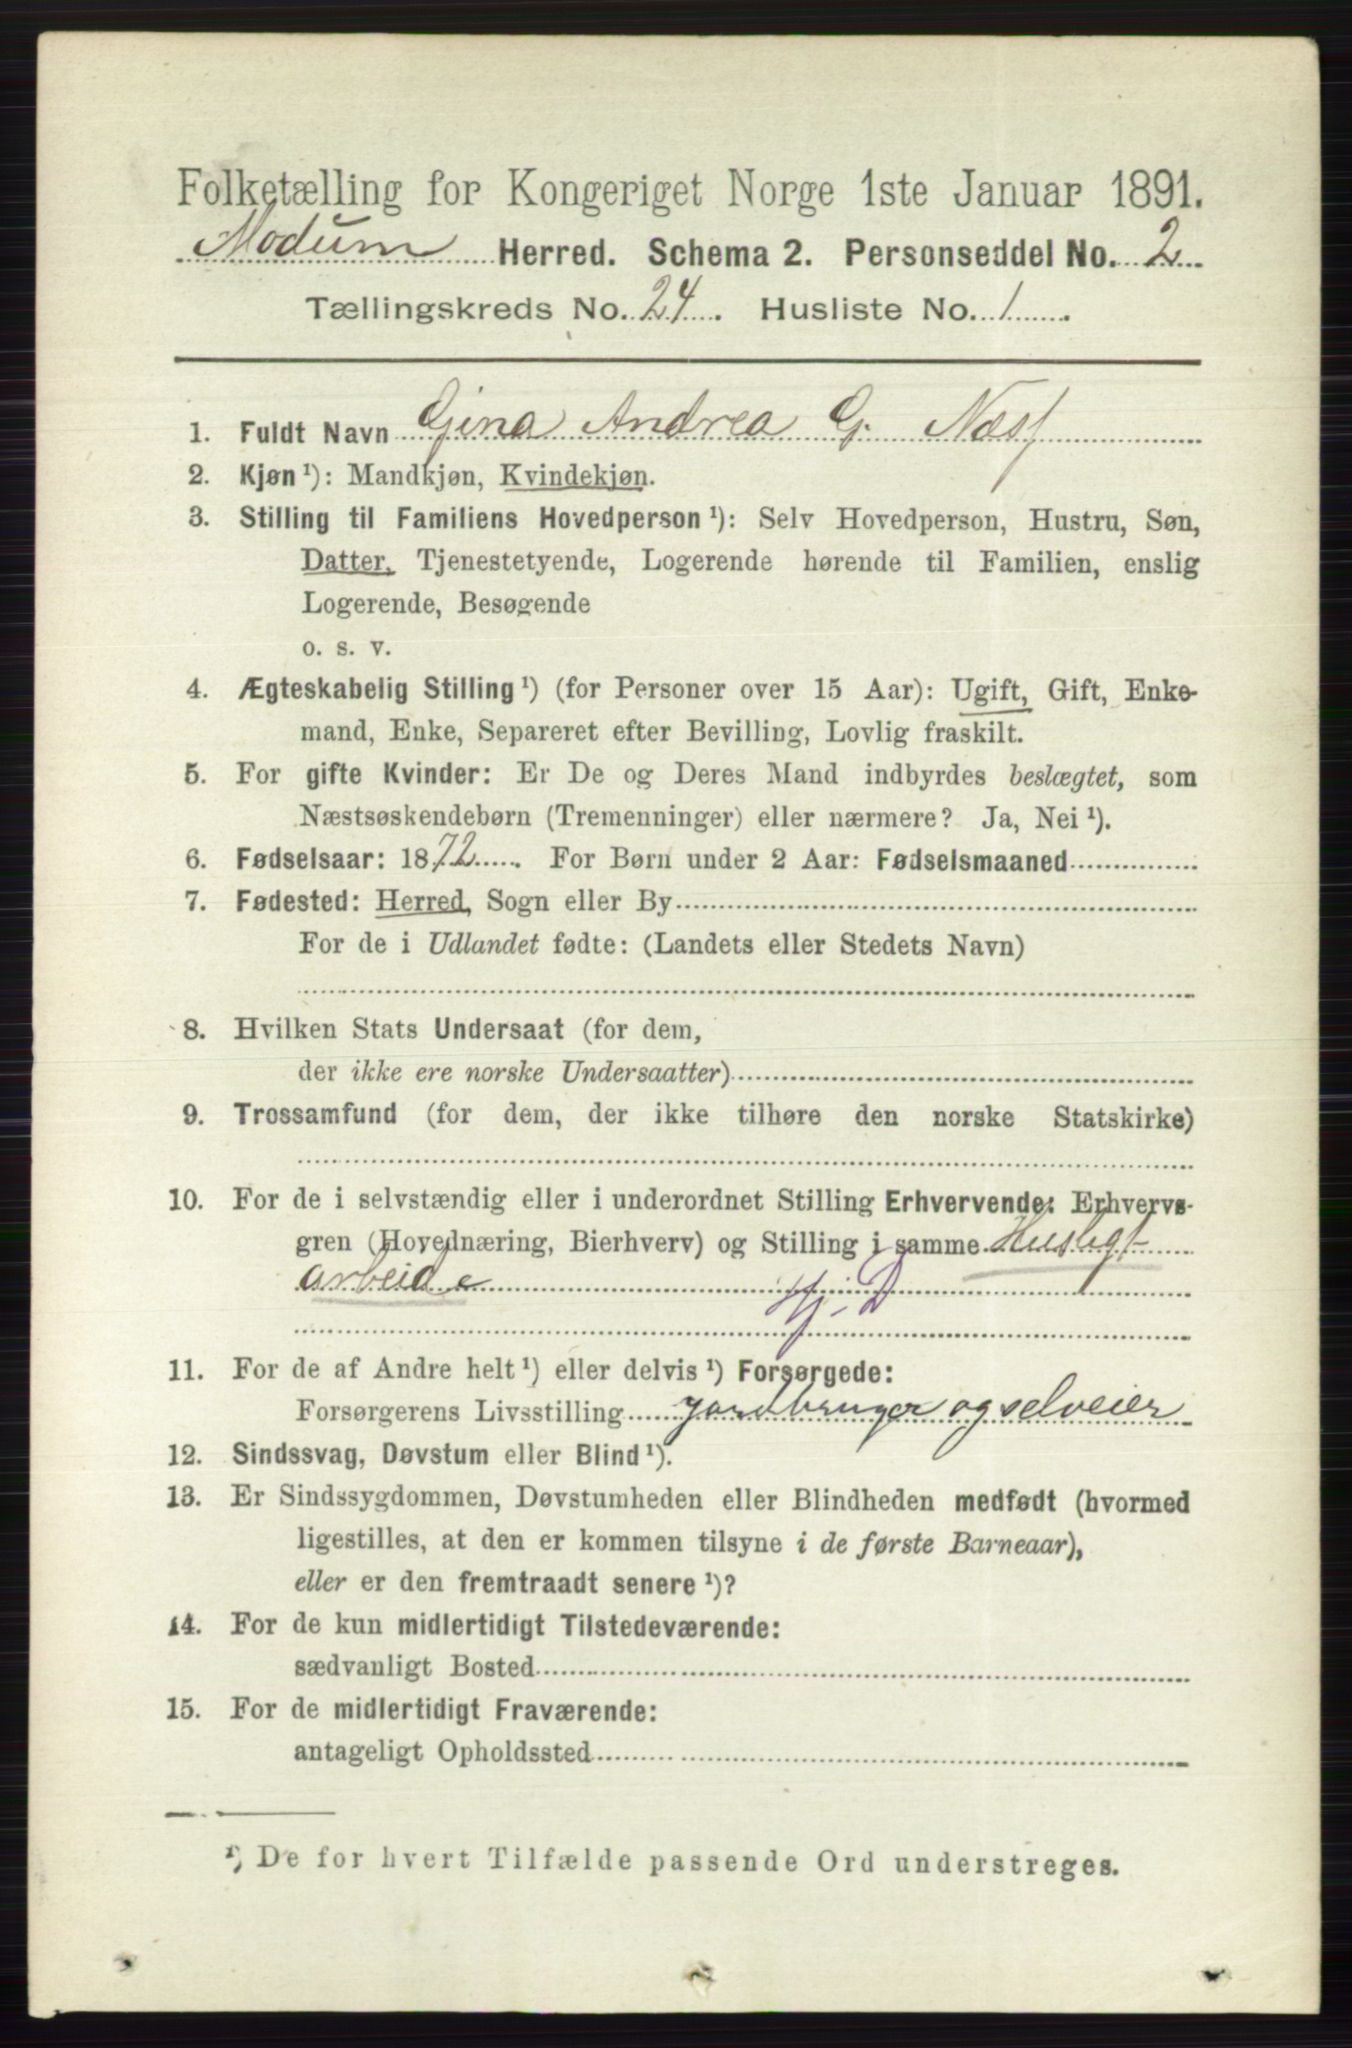 Folketælling for Kongeriget Norge 1ste Januar 1891.
Modum Herred. Schema 2. Personseddel No. 2
Tællingskreds No. 24. Husliste No. 1
1. Fuldt Navn Gina Andrea G. Næss
2. Kjøn ¹): Mandkjøn, Kvindekjøn.
3. Stilling til Familiens Hovedperson ¹): Selv Hovedperson, Hustru, Søn,
Datter, Tjenestetyende, Logerende hørende til Familien, enslig
Logerende, Besøgende
o. s. v.
4. Ægteskabelig Stilling ¹) (for Personer over 15 Aar): Ugift, Gift, Enke-
mand, Enke, Separeret efter Bevilling, Lovlig fraskilt.
5. For gifte Kvinder: Er De og Deres Mand indbyrdes beslægtet, som
Næstsøskendebørn (Tremenninger) eller nærmere? Ja, Nei ¹).
6. Fødselsaar: 1872. For Børn under 2 Aar: Fødselsmaaned
7. Fødested: Herred, Sogn eller By
For de i Udlandet fødte: (Landets eller Stedets Navn)
8. Hvilken Stats Undersaat (for dem,
der ikke ere norske Undersaatter)
9. Trossamfund (for dem, der ikke tilhøre den norske Statskirke)
10. For de i selvstændig eller i underordnet Stilling Erhvervende: Erhvervs-
gren (Hovednæring, Bierhverv) og Stilling i samme Husligt
arbeide
Hj. D
11. For de af Andre helt ¹) eller delvis ¹) Forsørgede:
Forsørgerens Livsstilling jordbruger og selveier
12. Sindssvag, Døvstum eller Blind ¹).
13. Er Sindssygdommen, Døvstumheden eller Blindheden medfødt (hvormed
ligestilles, at den er kommen tilsyne i de første Barneaar),
eller er den fremtraadt senere ¹)?
14. For de kun midlertidigt Tilstedeværende:
sædvanligt Bosted
15. For de midlertidigt Fraværende:
antageligt Opholdssted
¹) De for hvert Tilfælde passende Ord understreges.